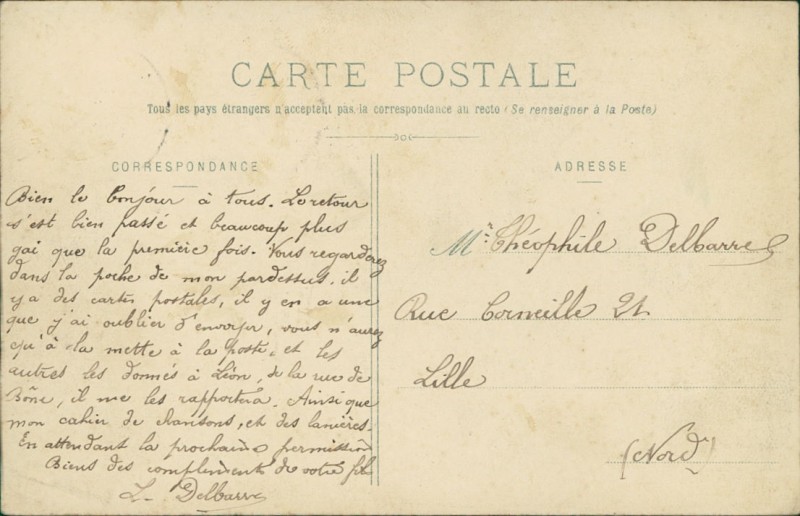 CARTE POSTALE
Tous les pays étrangers n'acceptent pas la correspondance au recto (Se renseigner à la Poste)
CORRESPONDANCE
Bien le bonjour à tous. Le retour
s'est bien passé et beaucoup plus
gai que la première fois. Vous regarderez
dans la poche de mon pardessus, il
y a des cartes postales, il y en a une
que j'ai oublier d'envoyer, vous n'aurez
qu'à la mettre à la poste, et les
autres les donnés à Léon, de la rue de
Bône, il me les rapportera. Ainsi que
mon cahier de chansons, et des lanières.
En attendant la prochaine permission
Biens des compliments de votre fils
L. Delbarre
ADRESSE
Mr Théophile Delbarre
Rue Corneille 21
Lille
(Nord)